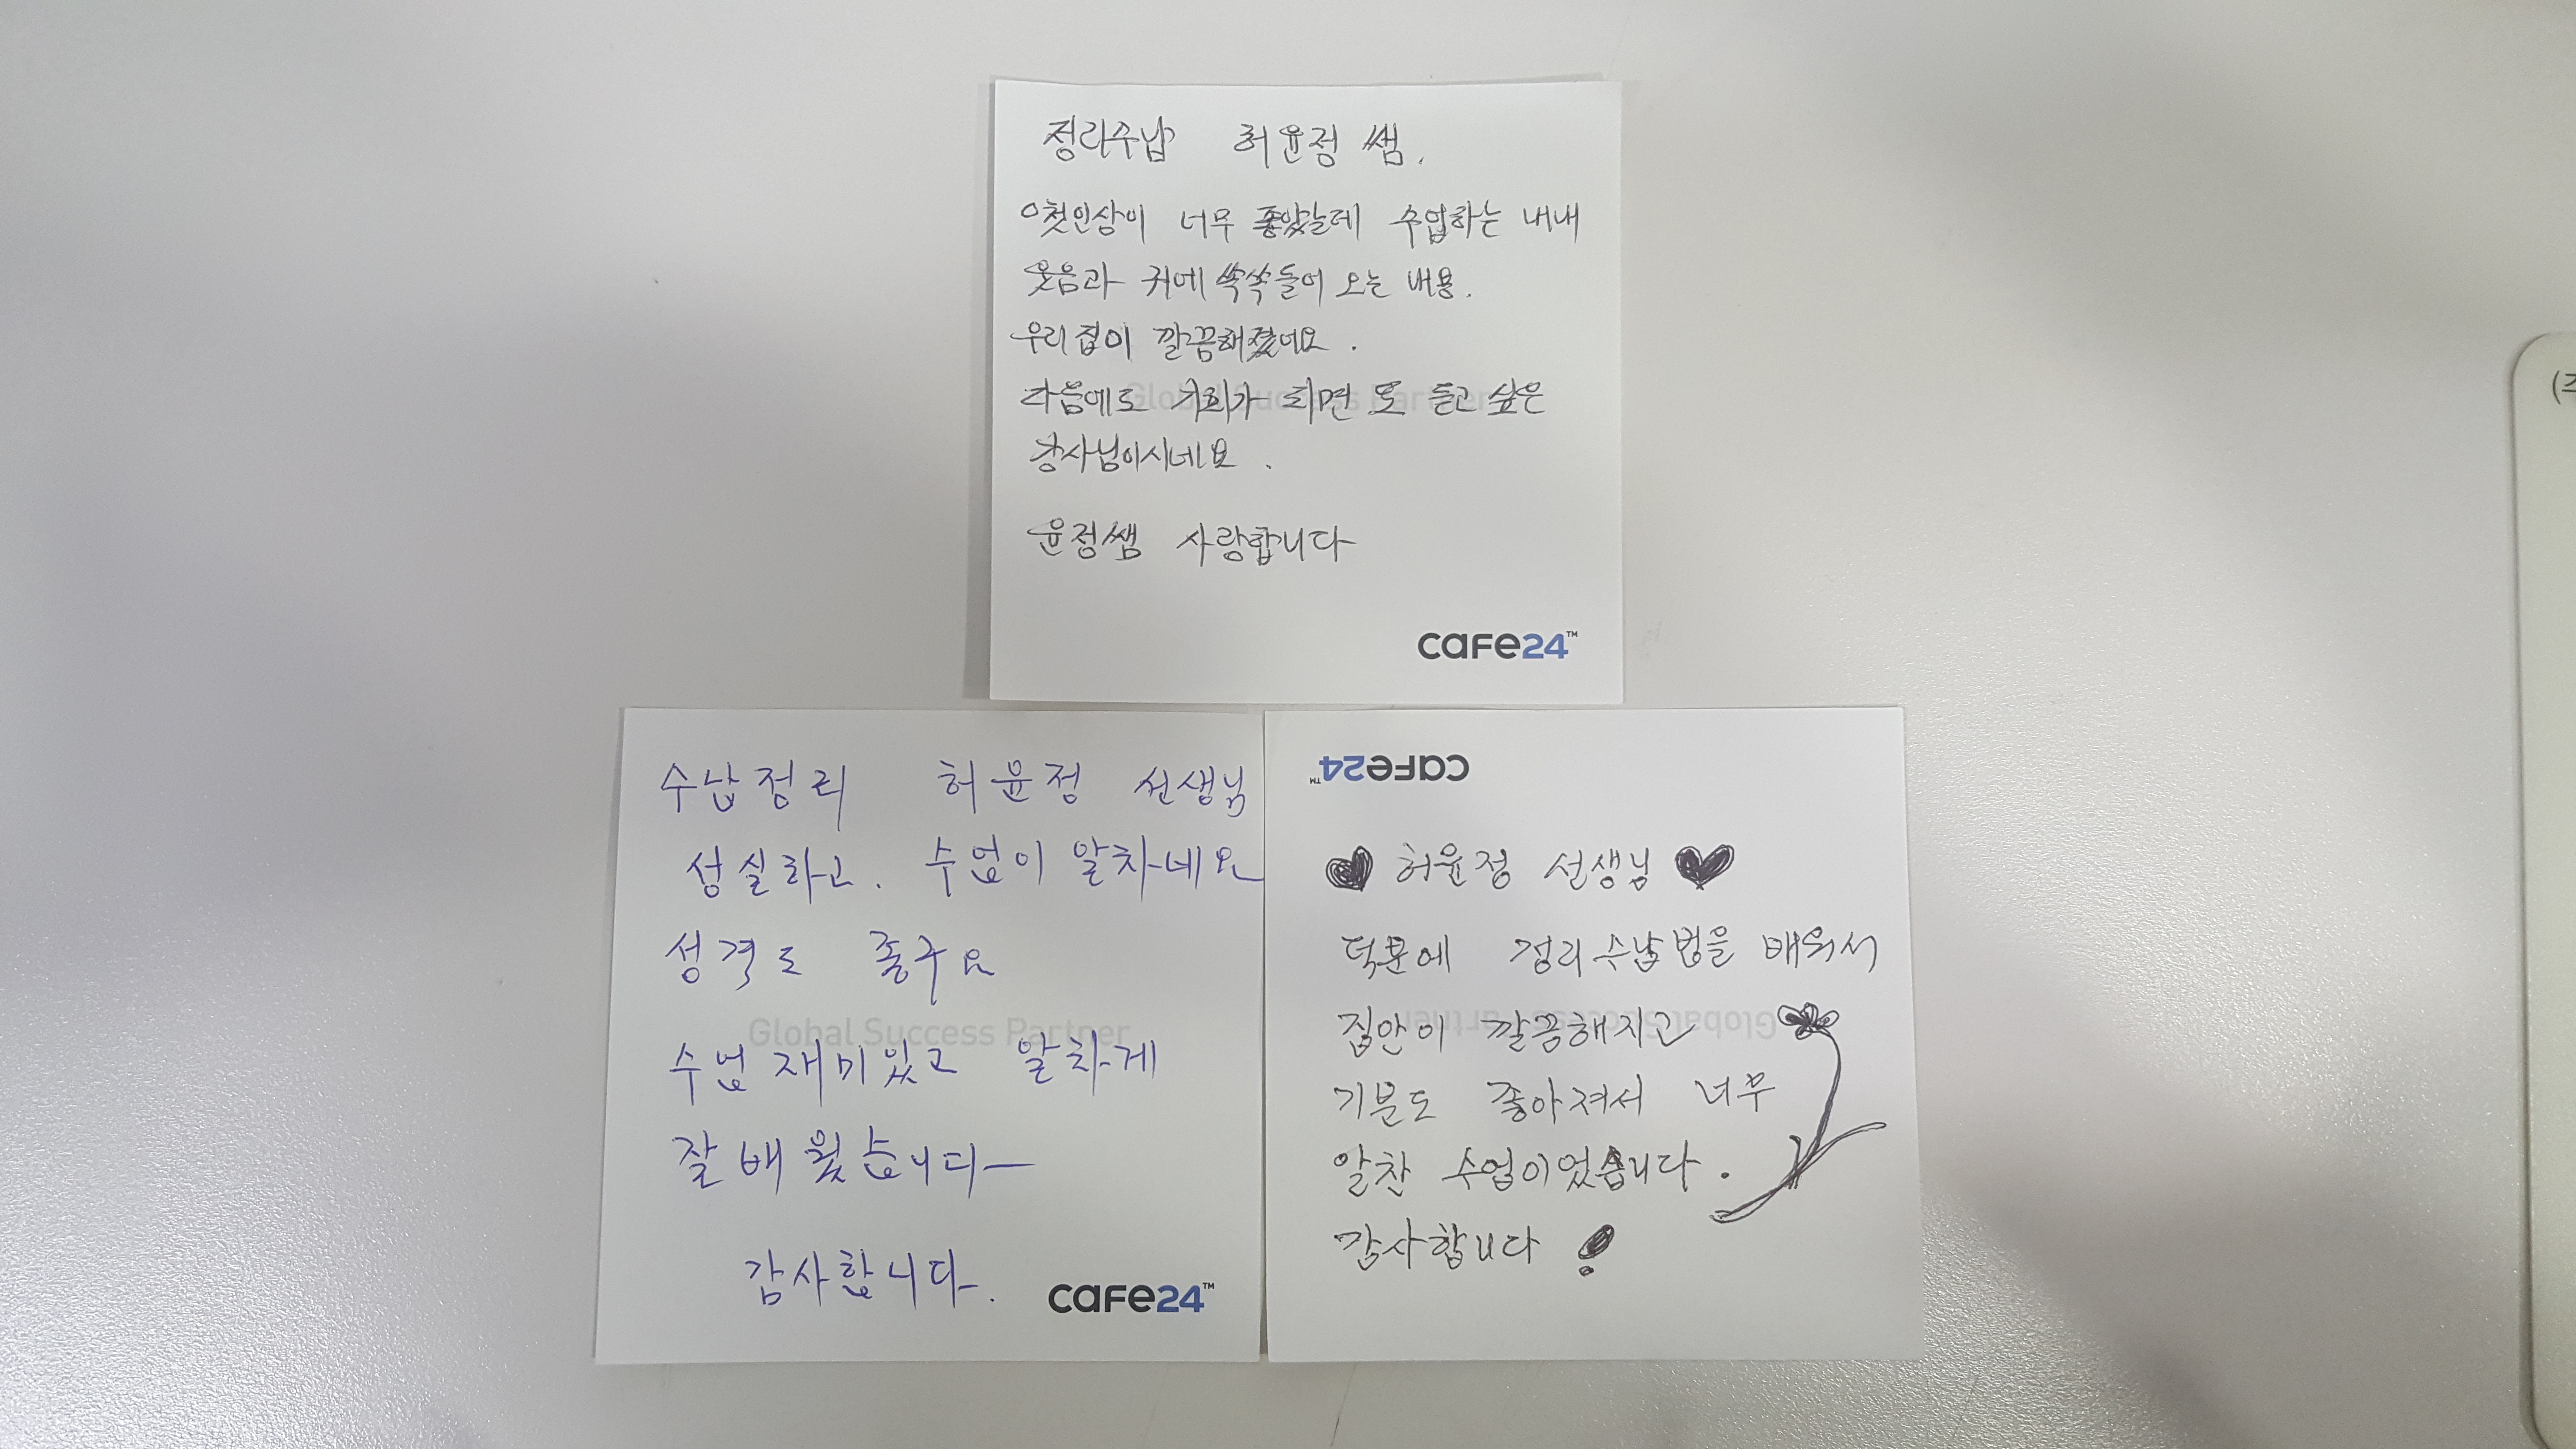 정리수납 허윤정 쌤.
첫인상이 너무 좋았는데 수업하는 내내
웃음과 귀에 쏙쏙 들어 오는 내용.
우리집이 깔끔해졌네요.
다음에도 기회가 되면 또 듣고 싶은
강사님이시네요.
윤정쌤 사랑합니다
Global Success Partner
cafe24™
수납정리 허윤정 선생님
성실하고. 수업이 알차네요
성격도 좋구요
Global Success Partner
수업 재미있고 알차게
잘 배웠습니다
감사합니다.
cafe24™
cafe24™
♥ 허윤정 선생님 ♥
덕분에 정리수납법을 배워서
집안이 깔끔해지고
Global Success Partner
기분도 좋아져서 너무
알찬 수업이었습니다.
감사합니다!